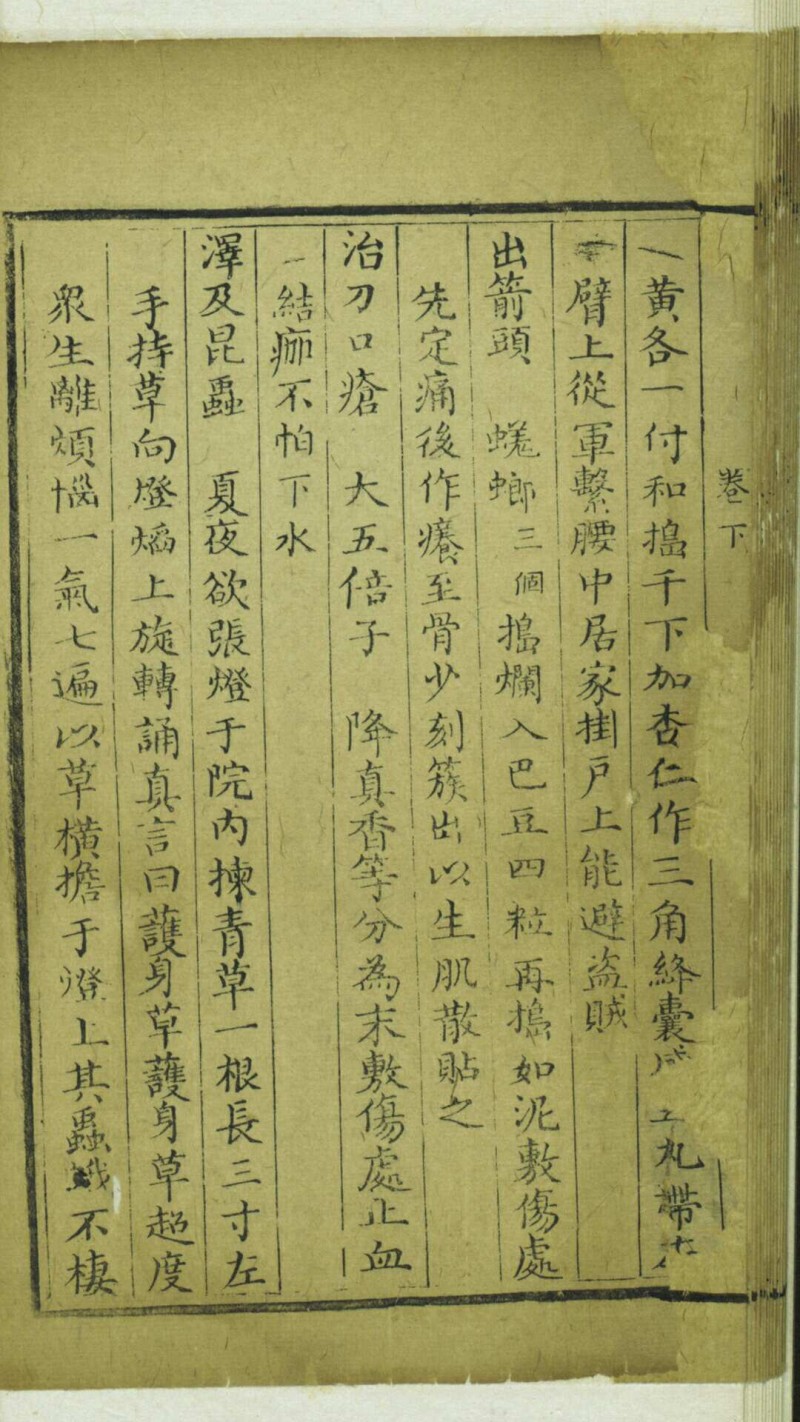 卷下
黃各一付和搗千下加杏仁作三角絳囊 丸帶
臂上從軍繫腰中居家掛戶上能避盜賊
出箭頭　蜣螂三個搗爛入巴豆四粒再搗如泥敷傷處
先定痛後作癢至骨少刻簇出以生肌散貼之
治刀口瘡　大五倍子　降真香等分為末敷傷處止血
結痂不怕下水
澤及昆蟲　夏夜欲張燈于院內揀青草一根長三寸左
手持草向燈焰上旋轉誦真言曰護身草護身草超度
眾生離煩惱一氣七遍以草橫擔于燈上其蟲蛾不棲